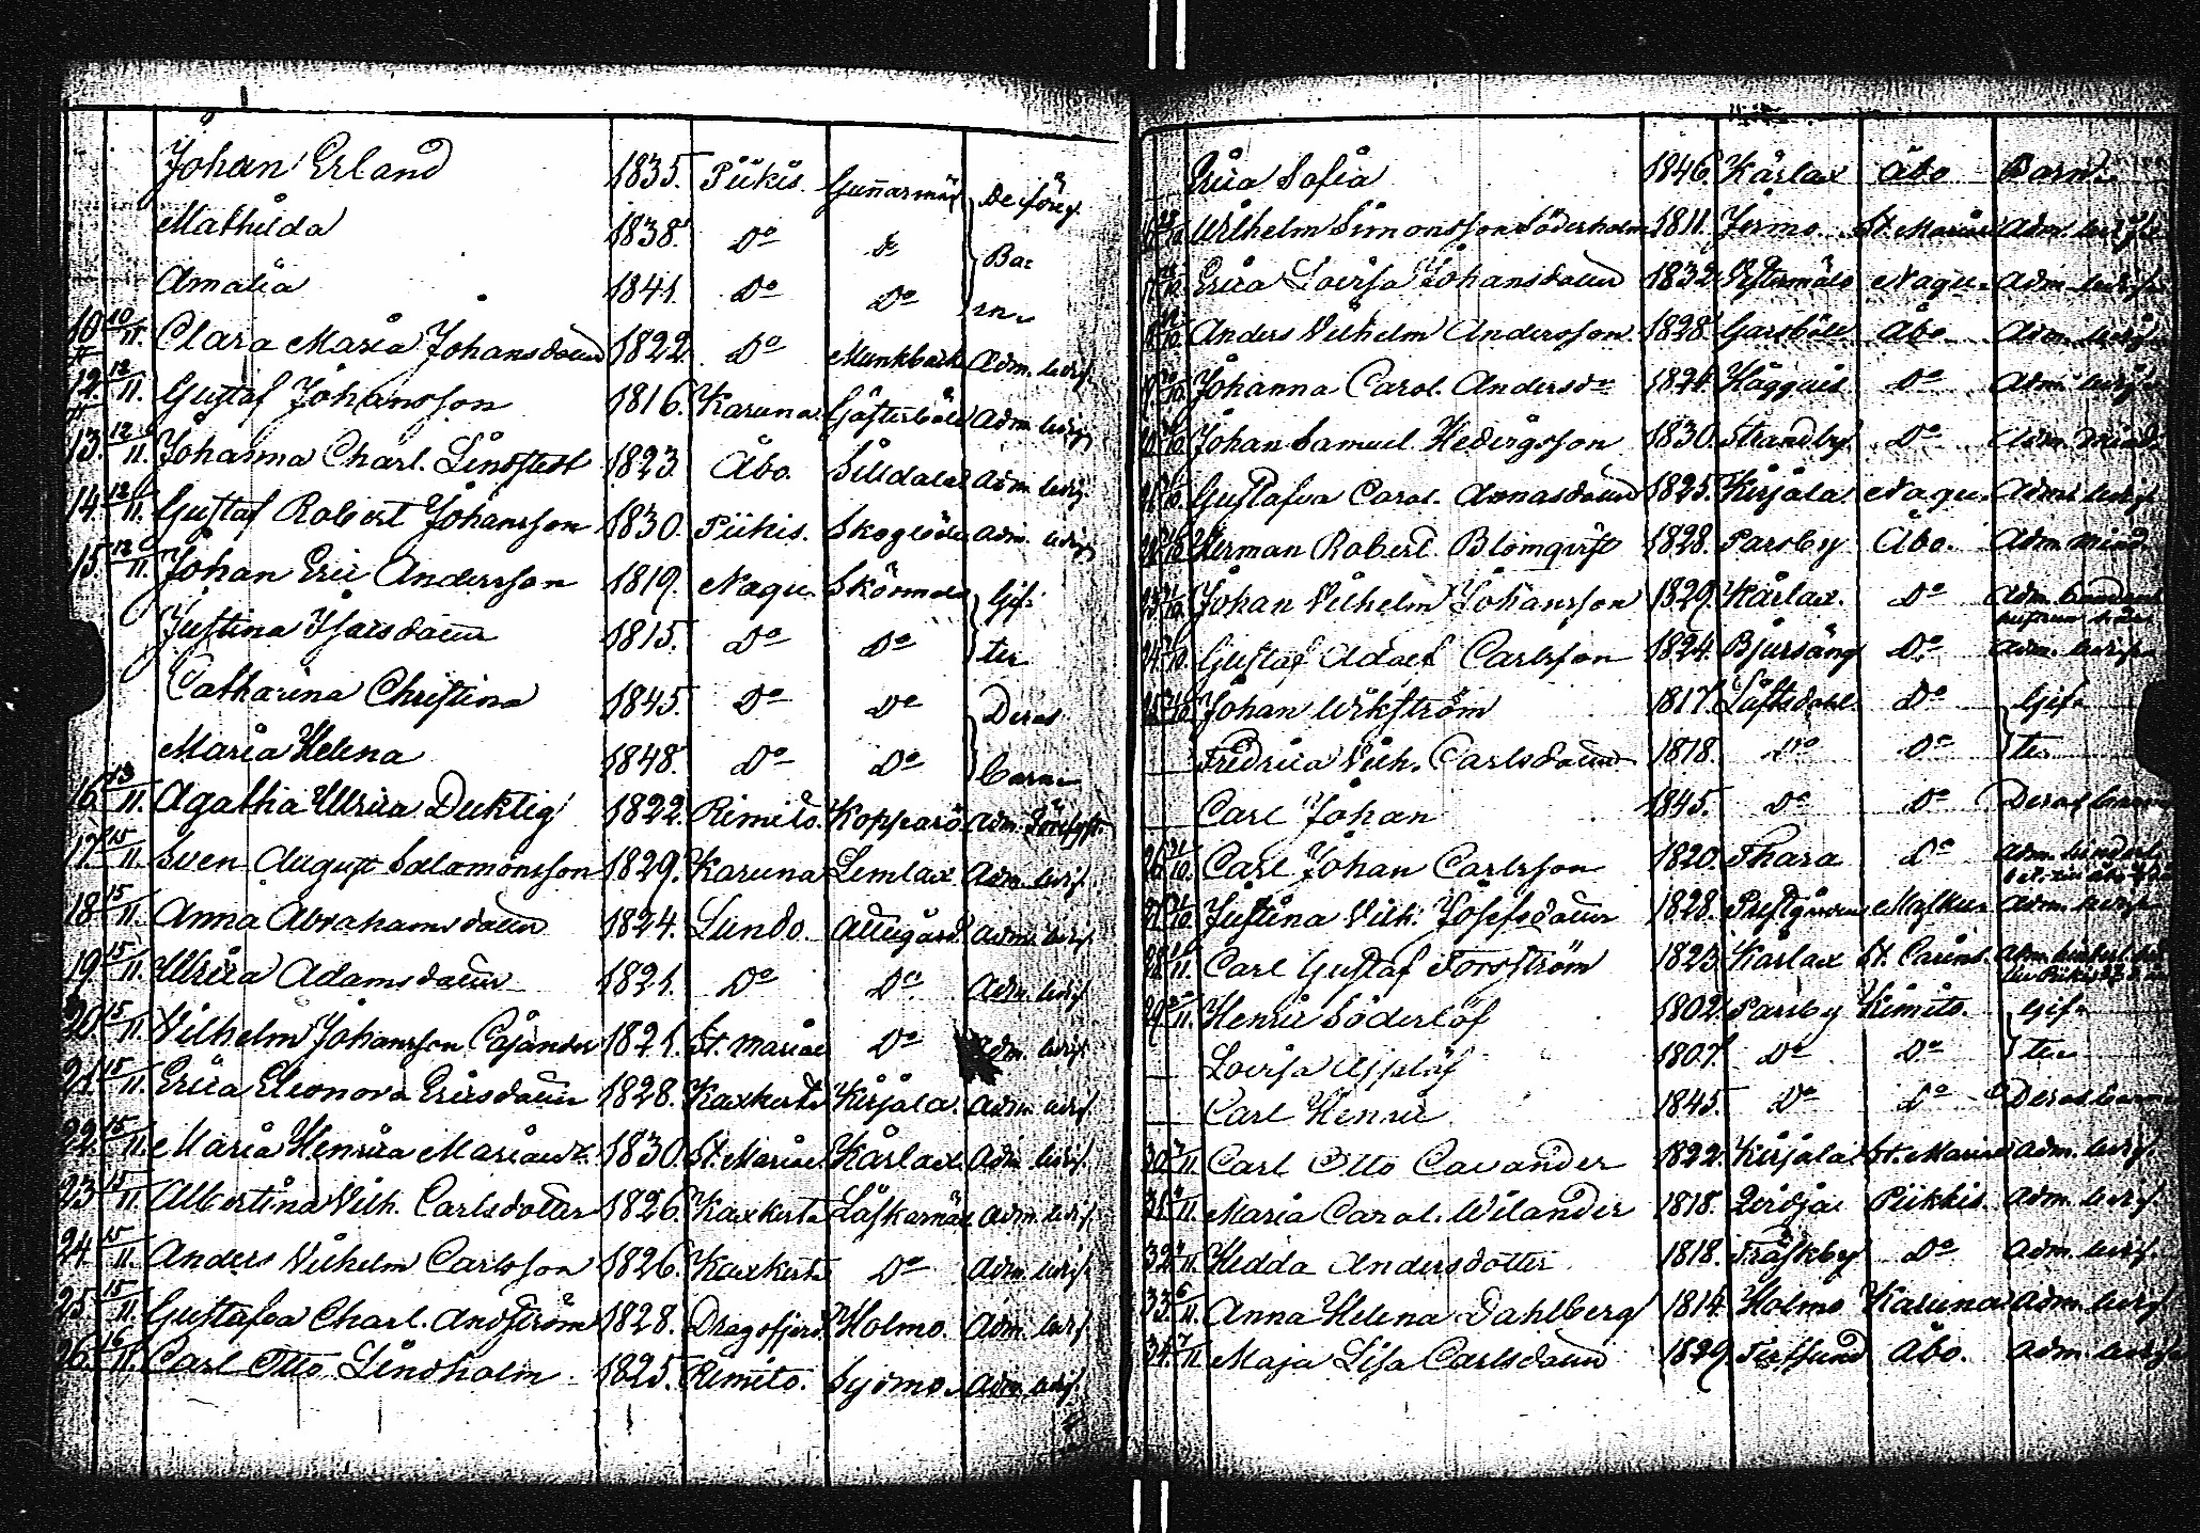 Johan Erland 1835. Piikis. Gunnarnäs De föreg.
Mathilda 1838. Do Do Bar
Amalia 1841. Do Do n.
10 10/11. Clara Maria Johansdotter 1822. Do Munkbacka Adm. ledig.
12. 12/11. Gustaf Johansson 1816. Karuna Gästerböle Adm. ledig.
13. 12/11. Johanna Charl. Lindstedt 1823 Åbo. Silldala Adm. ledig.
14. 12/11. Gustaf Robert Johansson 1830. Piikis. Skogböle Adm. ledig.
15. 12/11. Johan Eric Andersson 1819. Nagu. Skärmola Gif-
Justina Isacsdotter 1815. Do Do ter
Catharina Christina 1845. Do Do Deras
Maria Helena 1848. Do Do barn
16 13/11. Agatha Ulrica Duktig 1822. Rimito. Kopparö Adm.
17. 15/11. Sven August Salamonsson 1829. Karuna Lemlax Adm. ledig.
18 15/11. Anna Abrahamsdotter 1824. Lundo. Attugård Adm. ledig.
19. 15/11. Ulrica Adamsdotter 1821. Do Do Adm. ledig.
20 15/11. Vilhelm Johansson Cajander 1821. St. Mariae Do Adm. ledig.
21. 15/11. Erica Eleonora Ericsdotter 1828. Kaxkerta Kirjala. Adm. ledig.
22. 15/11. Maria Henrica Mariaed:r 1830. St. Mariae Kårlax Adm. ledig.
23 15/11. Albertina Vilh. Carlsdotter 1826. Kaxkerta Läskarnäs Adm. ledig.
24. 15/11. Anders Vilhelm Carlsson 1826. Kaxkerta Do Adm. ledig
25. 15/11. Gustafva Charl. Andström 1828. Dragsfjerd Holmo. Adm. ledig.
26. 16/11. Carl Otto Lindholm 1825. Rimito. Syömo. Adm. ledig.
Erica Sofia 1846. Kårlax Åbo Barn.
Wilhelm Simonsson Söderholm 1811. Jermo. St. Mariae Adm.
Erica Lovisa Johansdotter 1832. Nagu. Adm. ledig.
Anders Vilhelm Andersson. 1828. Garsböle Åbo. Adm. ledig.
Johanna Carol. Andersdr 1824. Häggnäs Do Adm. ledig.
Johan Samuel Hedirgsson 1830. Strandby. Do Adm.
Gustafva Carol. Annasdotter 1825. Kirjala. Nagu. Adm. ledig.
Herman Robert Blomqvist 1828. Parsby Åbo. Adm. mind.
Johan Vilhelm Johansson 1829. Kårlax. Do Adm.
Gustaf Adolf Carlsson 1824. Bjursäng Do Adm. ledig.
Johan Wikström 1817. Läftsdahl. Do Gif-
Fredrica Vilh. Carlsdotter 1818. Do Do ter
Carl Johan 1845. Do Do Deras barn
Carl Johan Carlsson 1820. Thara Do Adm. hinderl.
Justina Vilh. Josefsdotter 1828. Prestgården Masku. Adm. ledig.
Carl Gustaf Forsström 1823 Kårlax St. Carins. Adm. hinderl.
Henric Söderlöf 1802. Parsby Kimito. Gif-
Lovisa Applöf 1807. Do Do ter
Carl Henric 1845. Do Do Deras barn
30. /11. Carl Otto Cavander 1822. Kirjala. St. Mariae Adm. ledig.
31. /11. Maria Carol. Wilander 1818. Qvidja Piikkis. Adm. ledig.
32. /11. Hedda Andersdotter 1818. Träskby Do Adm. ledig.
33. 6/11. Anna Helena Dahlberg 1814. Holmo Karuna Adm. ledig
34. 7/11 Maja Lisa Carlsdotter 1829. Tirfsund Åbo. Adm. ledig